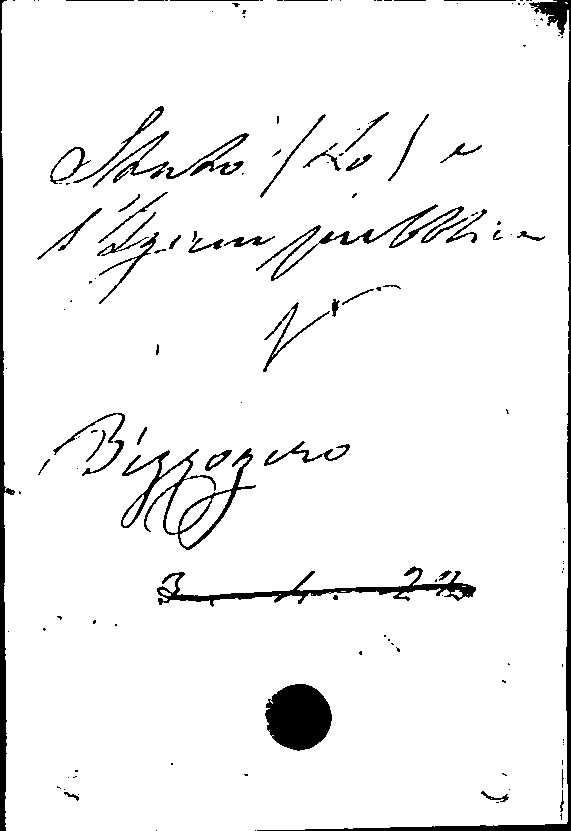 Stato (Lo) e
l'Igiene pubblica
V
Bizzozero
3. 4. 22